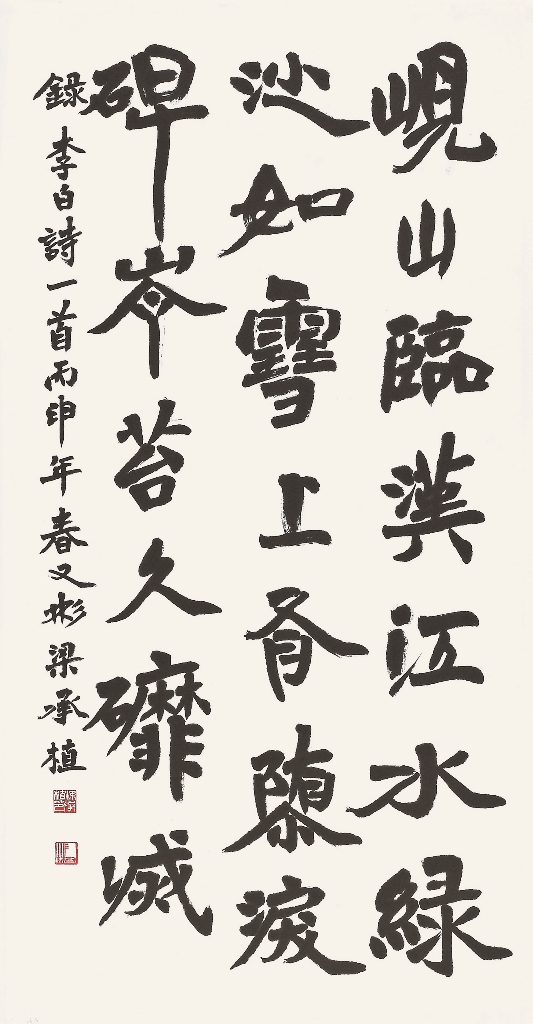 峴山臨漢江水綠
沙如雪上有墮淚
碑岑苔久䃺滅
錄李白詩一首丙申年春又彬梁承植